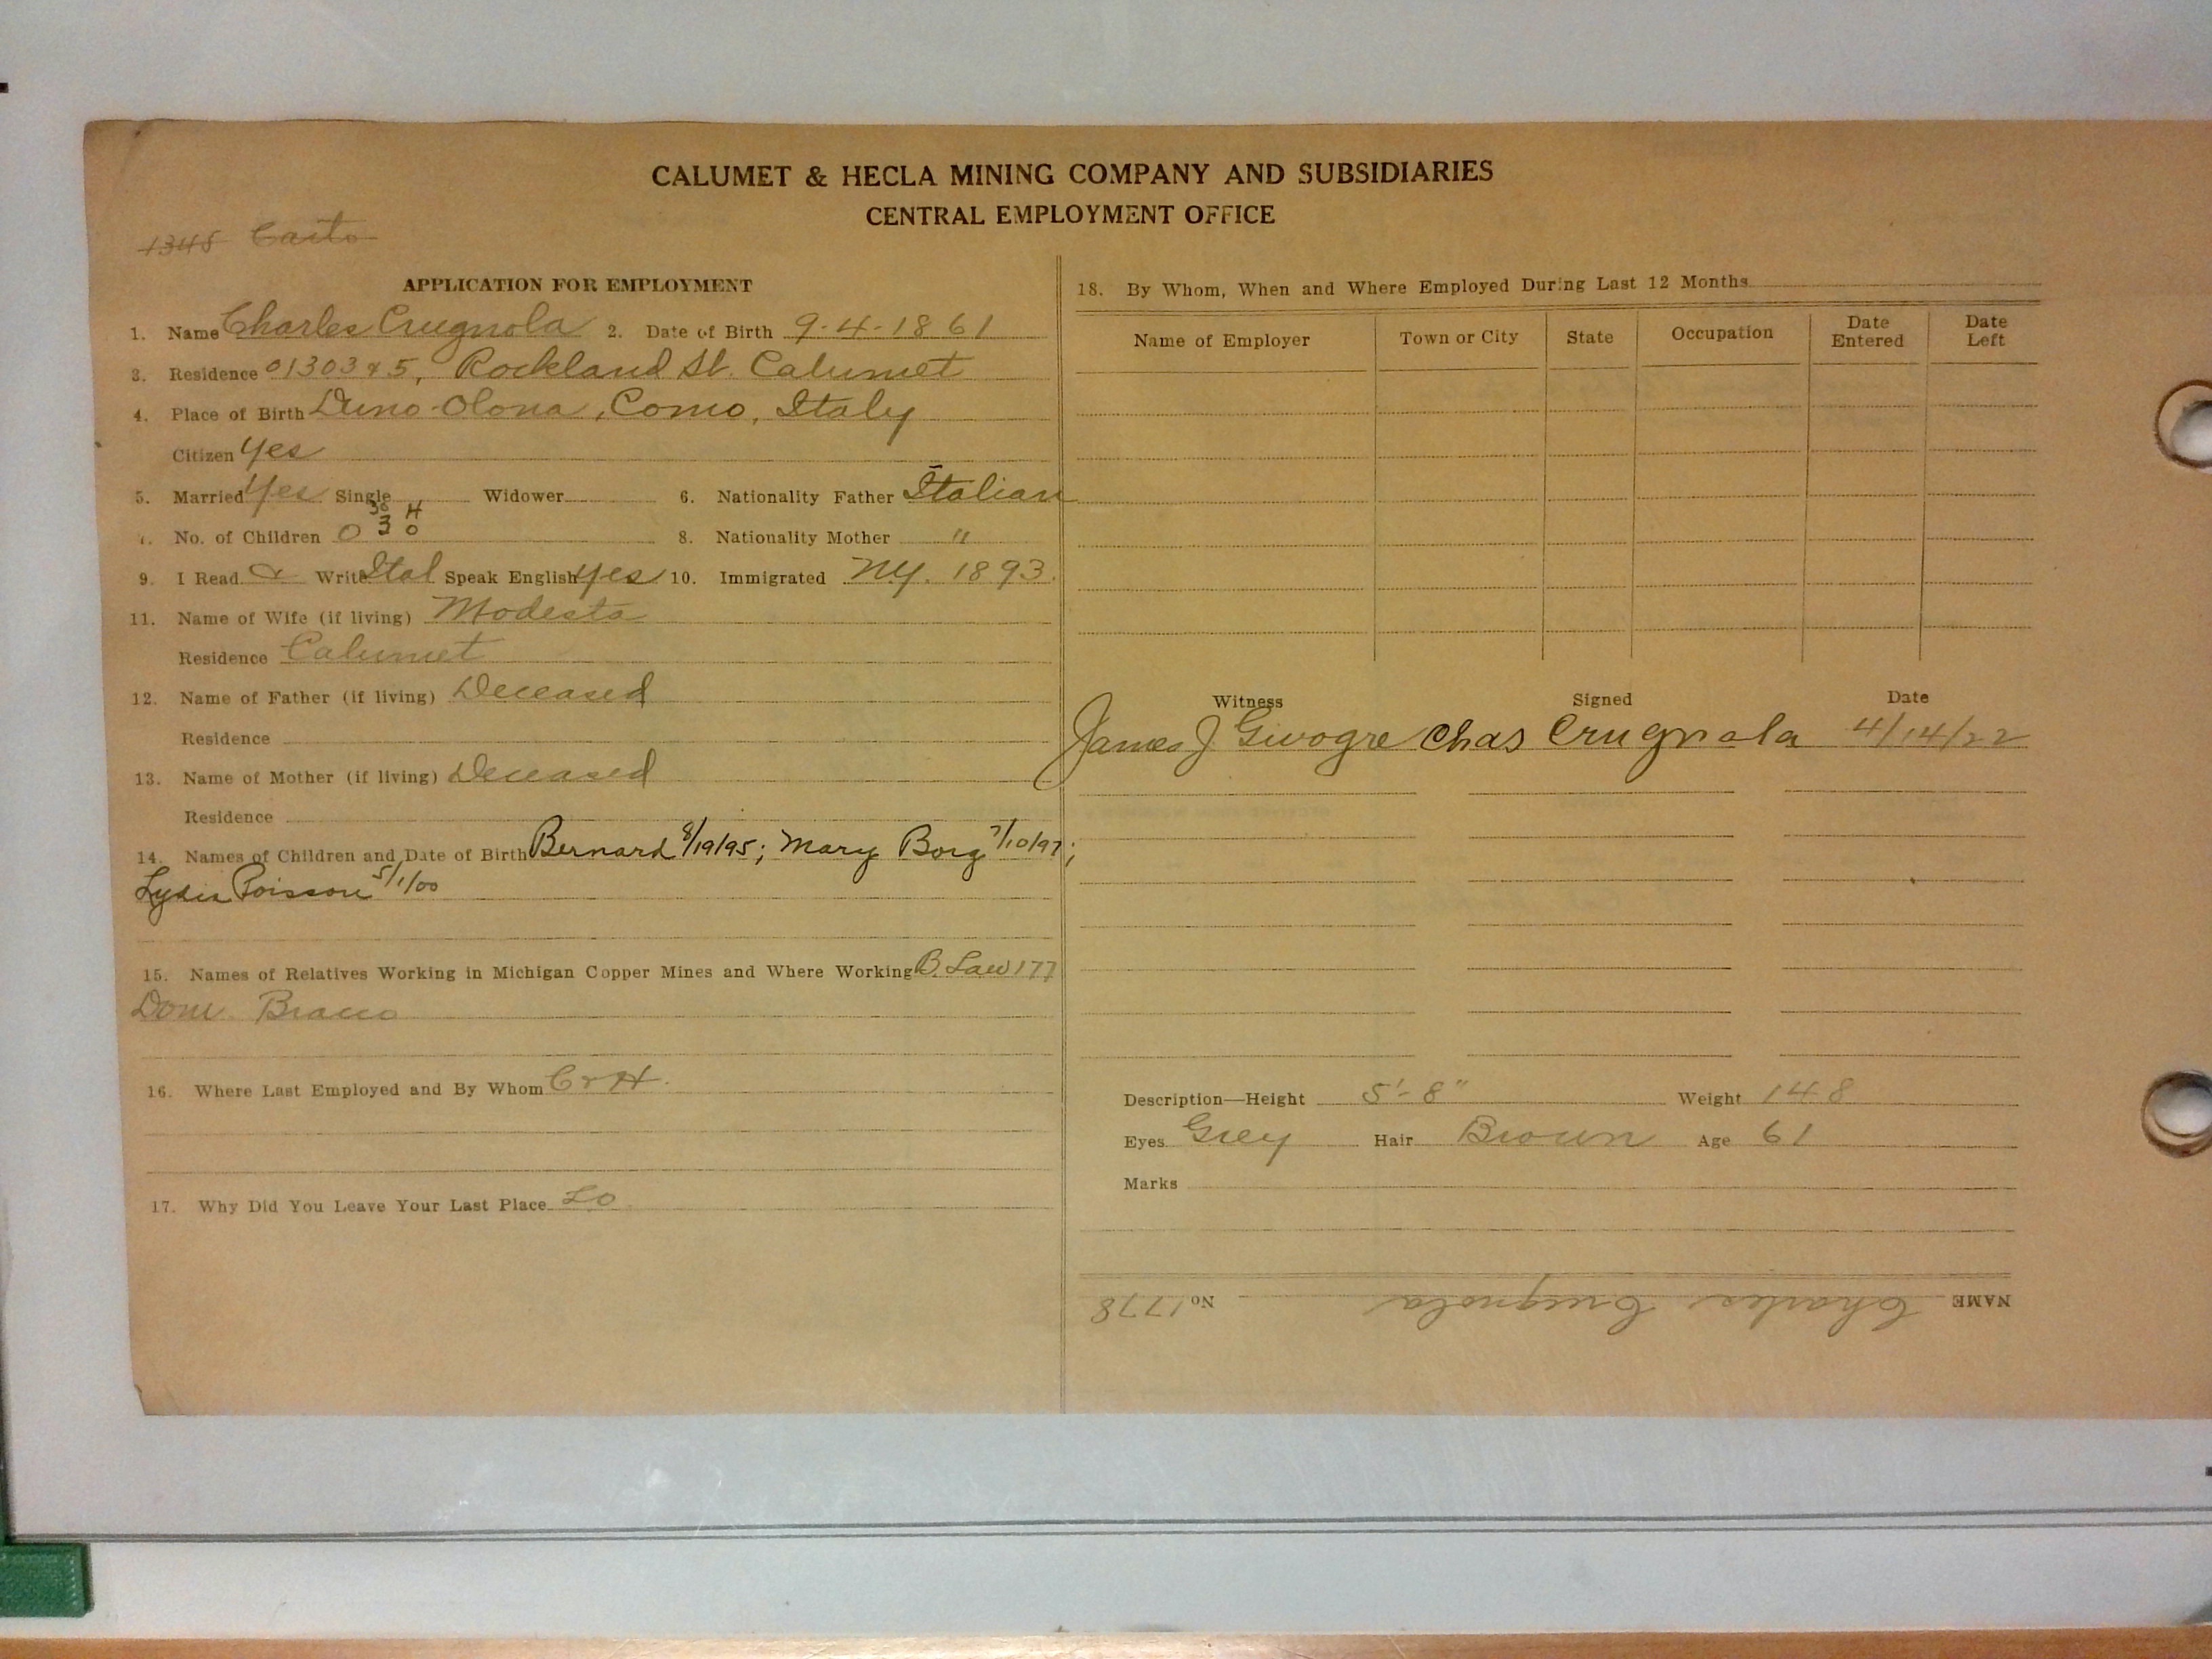 CALUMET & HECLA MINING COMPANY AND SUBSIDIARIES
CENTRAL EMPLOYMENT OFFICE
1348
APPLICATION FOR EMPLOYMENT
1. Name Charles Crugnola 2. Date of Birth 9-4-1861
3. Residence Rockland St. Calumet
4. Place of Birth Duno-Olona, Como, Italy
Citizen Yes
5. Married Yes Single Widower 6. Nationality Father Italian
7. No. of Children 0 8. Nationality Mother "
9. I Read & Write Ital Speak English Yes 10. Immigrated NY. 1893.
11. Name of Wife (if living) Modesta
Residence Calumet
12. Name of Father (if living) Deceased
Residence
13. Name of Mother (if living) Deceased
Residence
14. Names of Children and Date of Birth Bernard 8/19/95; Mary Borg 7/10/97;
Lydia Poisson 5/1/00
15. Names of Relatives Working in Michigan Copper Mines and Where Working B. Law 177
Dom. Bracco
16. Where Last Employed and By Whom C & H.
17. Why Did You Leave Your Last Place LO
18. By Whom, When and Where Employed During Last 12 Months
Name of Employer Town or City State Occupation Date Entered Date Left
Witness Signed Date
James J Chas Crugnola 4/14/22
Description—Height 5'-8" Weight 148
Eyes Grey Hair Brown Age 61
Marks
NAME Charles Crugnola No 1778